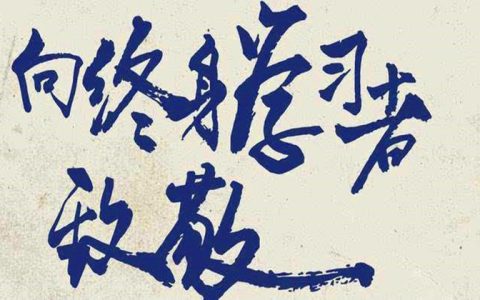 向终身学习者
致敬